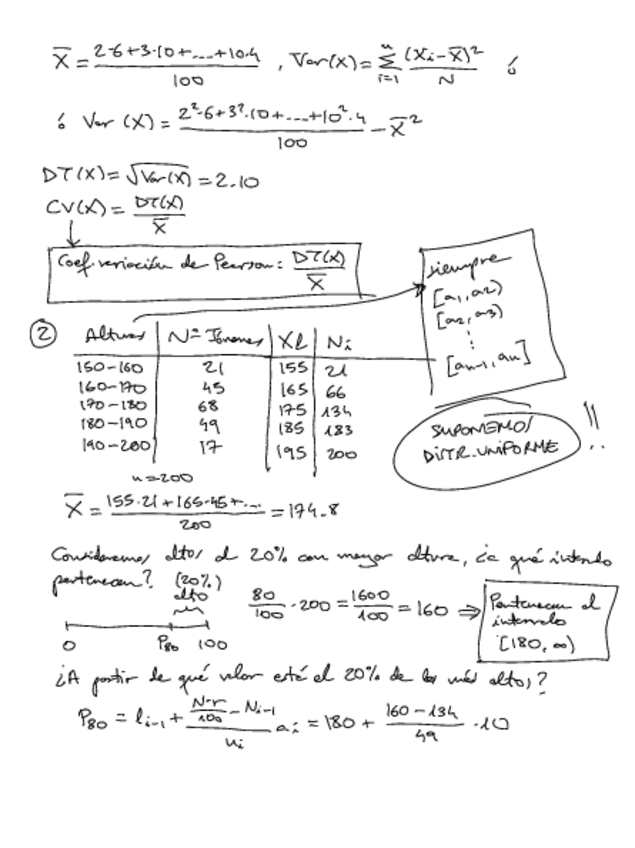 X̄ = 2·6+3·10+....+10·4 / 100 , Var(X) = Σ_{i=1}^{n} (Xi-X̄)² / N ó
ó Var (X) = 2²·6+3²·10+....+10²·4 / 100 - X̄²
DT(X) = √Var(X) = 2.10
CV(X) = DT(X) / X̄
Coef. variación de Pearson: DT(X) / X̄
siempre
[a1, a2)
[a2, a3)
⋮
[an-1, an]
② Alturas | Nº Jóvenes | Xi | Ni
150-160 | 21 | 155 | 21
160-170 | 45 | 165 | 66
170-180 | 68 | 175 | 134
180-190 | 49 | 185 | 183
190-200 | 17 | 195 | 200
n=200
SUPONEMOS
DISTR. UNIFORME !!
X̄ = 155·21+165·45+... / 200 = 174.8
Consideramos altos al 20% con mayor altura, ¿a qué intervalo
pertenecen? (20%)
alto
0 P80 100
80/100 · 200 = 1600/100 = 160 ⇒
Pertenecen al
intervalo
[180, ∞)
¿A partir de qué valor está el 20% de los más altos?
P80 = li-1 + (N·r/100 - Ni-1) / ni · ai = 180 + (160-134) / 49 · 10